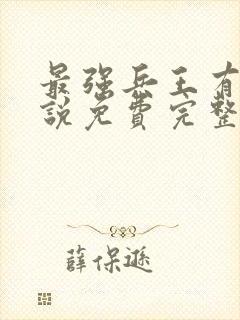 最强兵王有
說免費完整
薛保逊